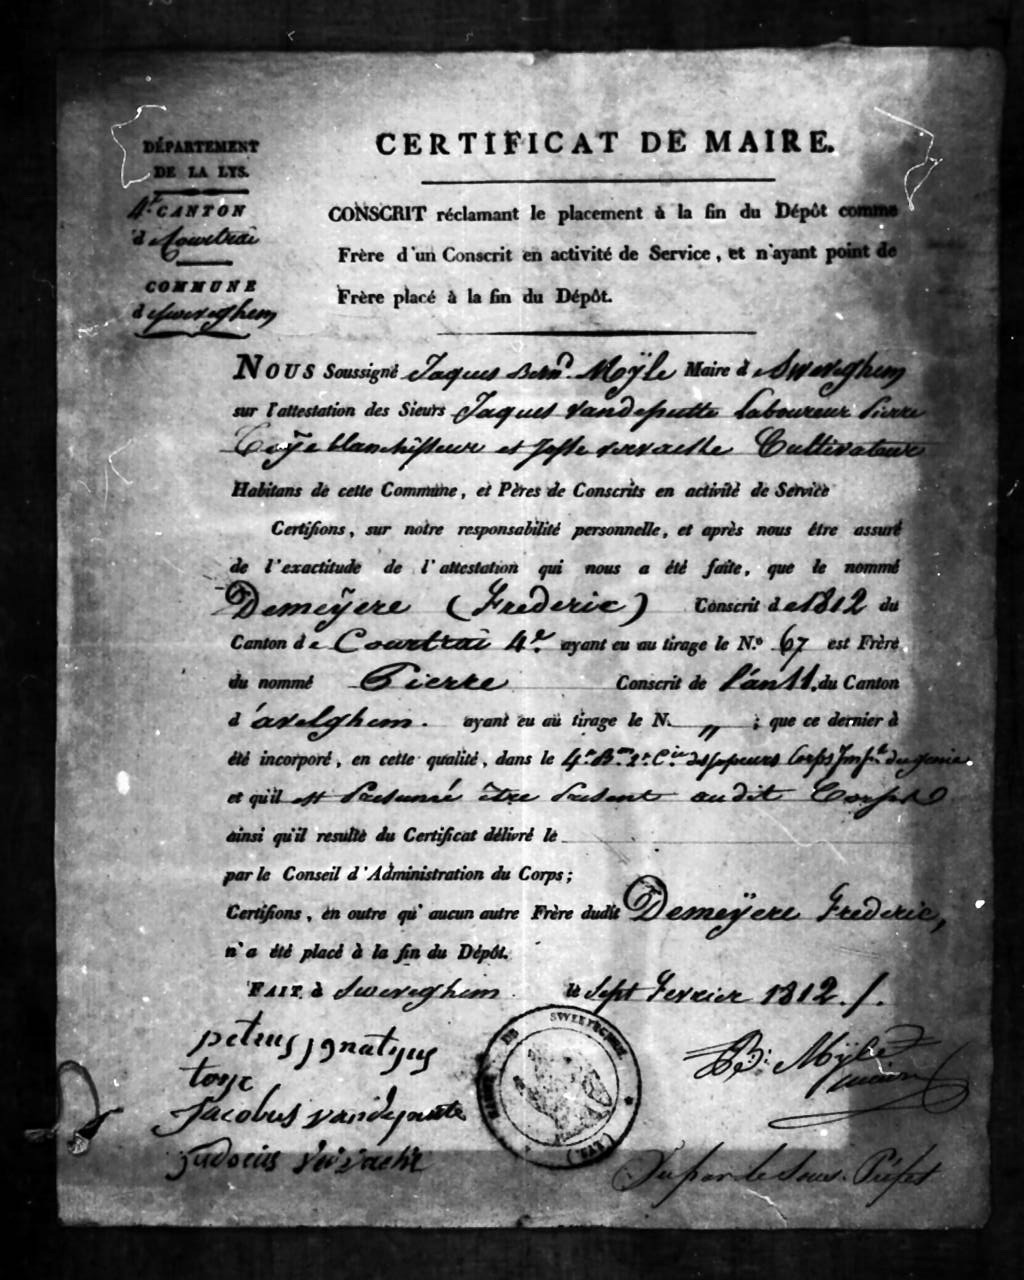 DÉPARTEMENT
DE LA LYS.
4.e CANTON
d e Courtrai
COMMUNE
d e Sweveghem
CERTIFICAT DE MAIRE.
CONSCRIT réclamant le placement à la fin du Dépôt comme
Frère d'un Conscrit en activité de Service, et n'ayant point de
Frère placé à la fin du Dépôt.
NOUS Soussigné Jaques Bern.d Moÿle Maire d e Sweveghem
sur l'attestation des Sieurs Jaques Vandeputte Laboureur Pierre
Toÿe blanchisseur et Josse vervaeke Cultivateur
Habitans de cette Commune, et Pères de Conscrits en activité de Service
Certifions, sur notre responsabilité personnelle, et après nous être assuré
de l'exactitude de l'attestation qui nous a été faite, que le nommé
Demeÿere (Frederic) Conscrit d e 1812 du
Canton d e Courtrai 4.e ayant eu au tirage le N.o 67 est Frère
du nommé Pierre Conscrit de l'an 11. du Canton
d 'avelghem. ayant eu au tirage le N. „ ; que ce dernier à
été incorporé, en cette qualité, dans le 4.e B.on 2.e C.ie des sapeurs Corps Imp.l du genie.
et qu'il est Présumé être Présent audit Corps
ainsi qu'il resulte du Certificat délivré le
par le Conseil d'Administration du Corps;
Certifions, en outre qu'aucun autre Frère dudit Demeÿere Frederic,
n'a été placé à la fin du Dépôt.
FAIT à Sweveghem le Sept Fevrier 1812. /.
petrus jgnatyus
toye
Jacobus vandeputte
judocus vervaeke
DE SWEVEGHEM
(LYS.)
B: Moÿle
maire
Vu par le Sous-Préfet